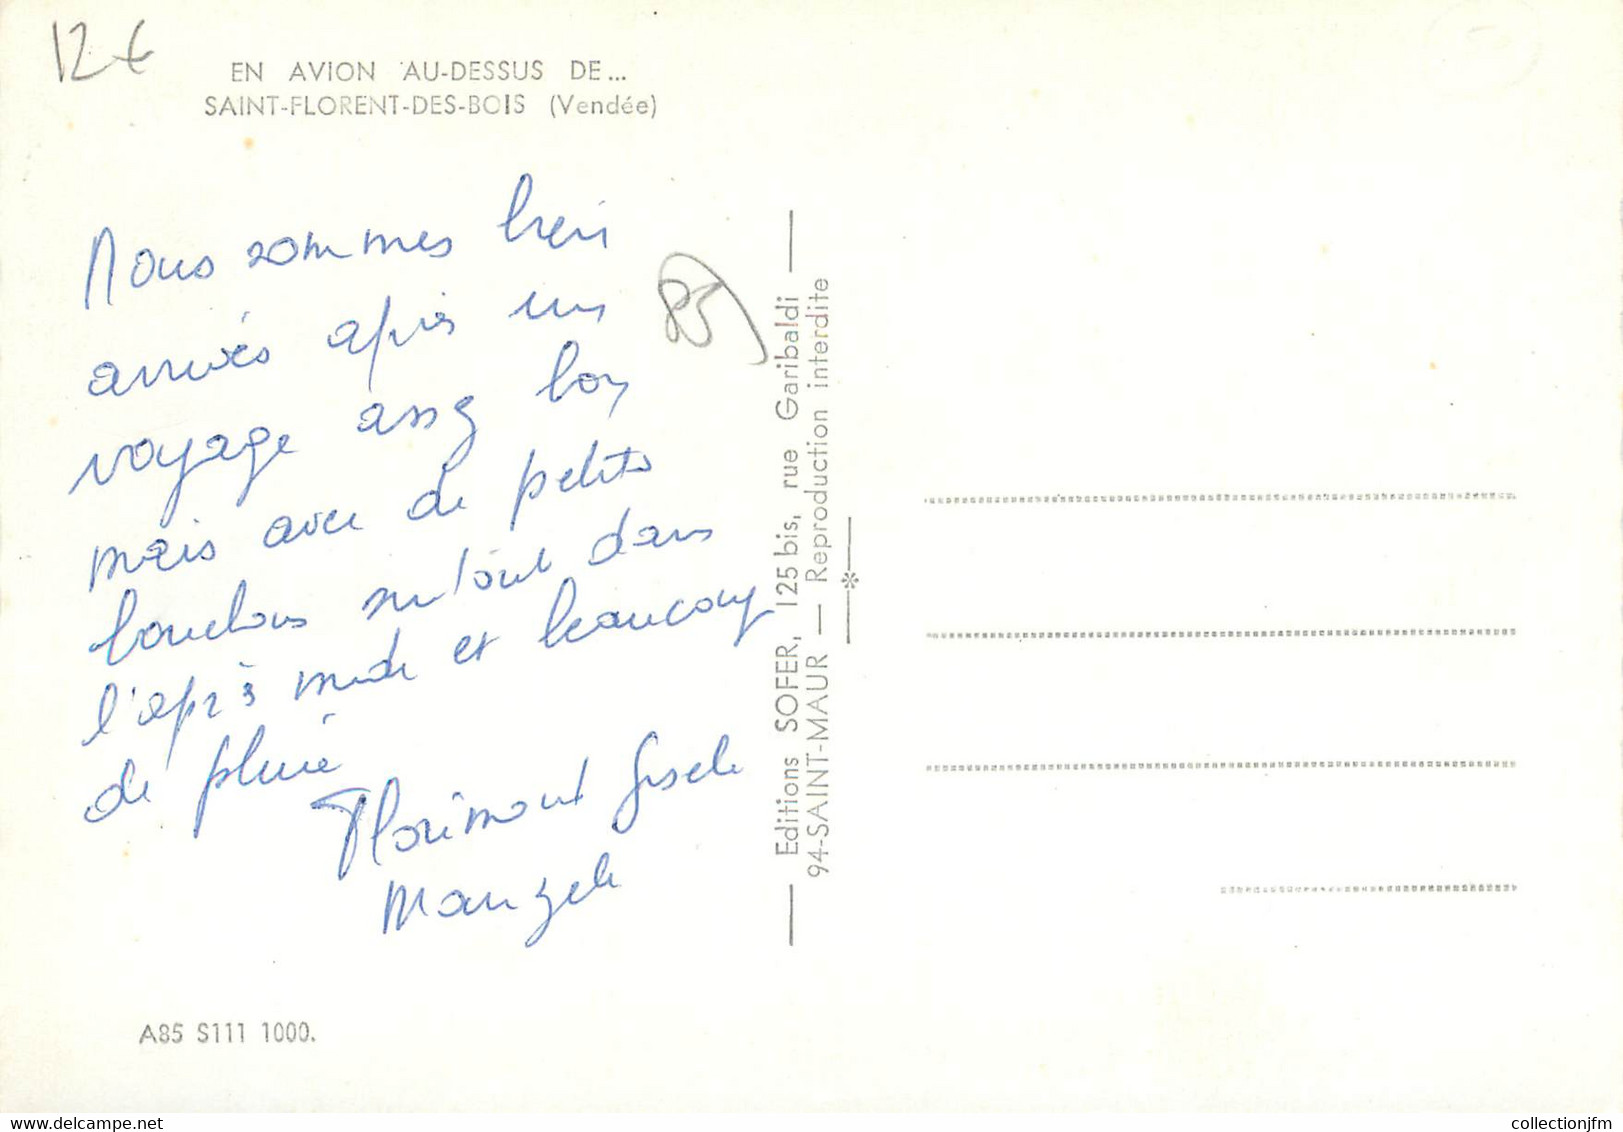 12 €
EN AVION AU-DESSUS DE...
SAINT-FLORENT-DES-BOIS (Vendée)
Nous sommes bien
arrivés après un
voyage assez bon
mais avec de petits
bouchons surtout dans
l'après midi et beaucoup
de pluie
Florimont Gisele
85
Editions SOFER, 125 bis, rue Garibaldi
94-SAINT-MAUR — Reproduction interdite
A85 S111 1000.
collectionjfm